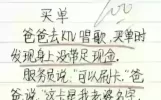 买单
爸爸去KTV唱歌,买单时
发现身上没带足现金。
服务员说:“可以刷卡。”爸
爸说:“这卡是我老婆名字,